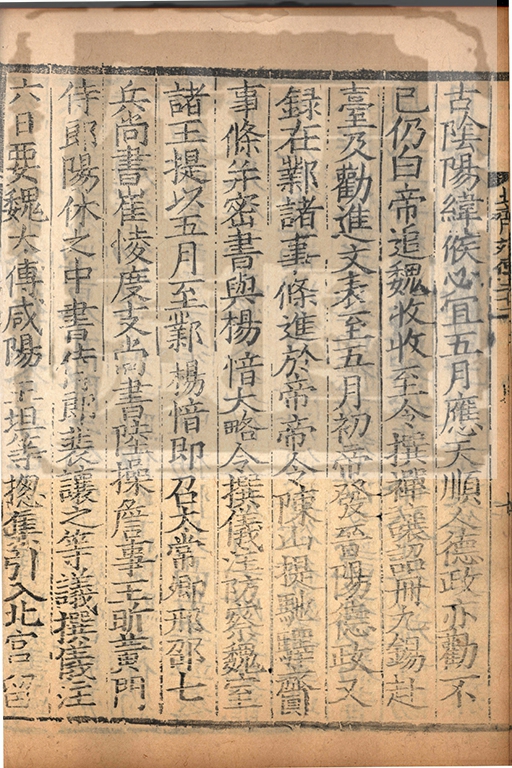 古陰陽緯候必宜五月應天順人德政亦勸不
已仍白帝追魏收收至令撰禪讓詔冊九錫建
臺及勸進文表至五月初帝發晉陽德政又
録在鄴諸事條進於帝帝令陳山提馳驛齎
事條并密書與楊愔大略令撰儀注防察魏室
諸王提以五月至鄴楊愔即召太常卿邢邵七
兵尚書崔㥄度支尚書陸操詹事王昕黃門
侍郎陽休之中書侍郎裴讓之等議撰儀注
六日要魏太傅咸陽王坦等揔集引入北宮留